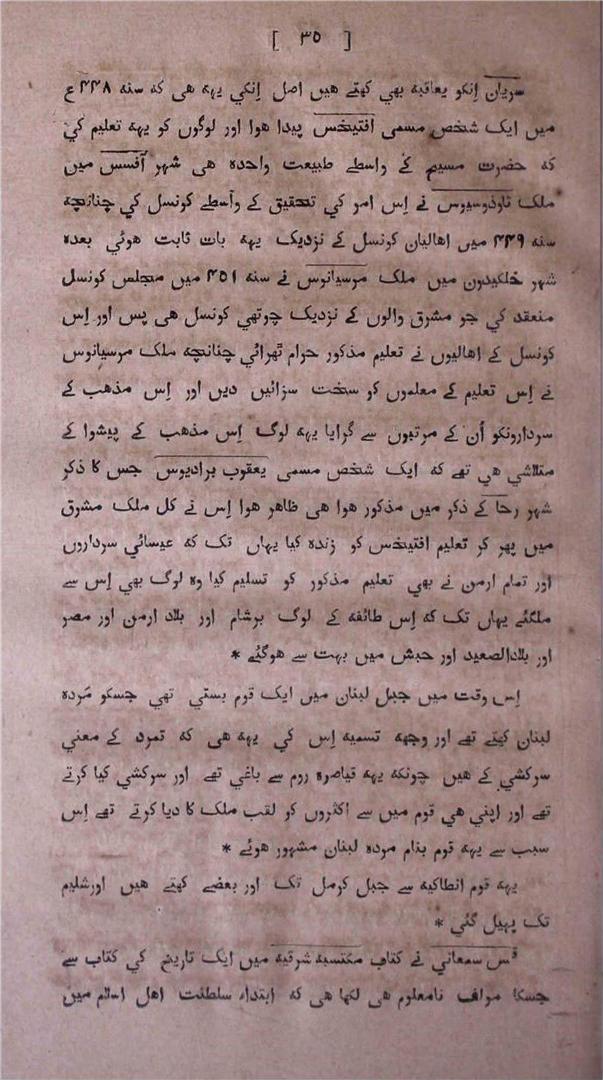 [ ٣٥ ]
سریان اِنکو یعاقبه بھي کہتے ھیں اصل اِنکي یہه ھی که سنه ۴۴۸ ع
میں ایک شخص مسمی افتیخس پیدا ھوا اور لوگوں کو یہه تعلیم کي
که حضرت مسیح کے واسطے طبیعت واحدہ ھی شہر آفسس میں
ملک تاوذوسیوس نے اِس امر کي تحقیق کے وأسطے کونسل کي چنانچه
سنه ۴۴۹ میں اھالیان کونسل کے نزدیک یہه بات ثابت ھوئي بعدہ
شہر خلکیدون میں ملک مرسیانوس نے سنه ۴۵۱ میں مجلس کونسل
منعقد کي جو مشرق والوں کے نزدیک چوتھي کونسل ھی پس اور اِس
کونسل کے اھالیوں نے تعلیم مذکور حرام ٹھرائي چنانچه ملک مرسیانوس
نے اِس تعلیم کے معلموں کو سخت سزائیں دیں اور اِس مذھب کے
سردارونکو اُن کے مرتبوں سے گرایا یہه لوگ اِس مذھب کے پیشوا کے
متلاشي ھي تھے که ایک شخص مسمی یعقوب برادیوس جس کا ذکر
شہر رحا کے ذکر میں مذکور ھوا ھی ظاھر ھوا اِس نے کل ملک مشرق
میں پھر کر تعلیم افتیخس کو زندہ کیا یہاں تک که عیسائي سرداروں
اور تمام ارمن نے بھي تعلیم مذکور کو تسلیم کیا وہ لوگ بھي اِس سے
ملگئے یہاں تک که اِس طائفه کے لوگ برشام اور بلاد ارمن اور مصر
اور بلادالصعید اور حبش میں بہت سے ھوگئے *
اِس وقت میں جبل لبنان میں ایک قوم بستي تھي جسکو مَردہ
لبنان کہتے تھے اور وجهه تسمیه اِس کي یہه ھی که تمرد کے معني
سرکشي کے ھیں چونکه یہه قیاصرہ روم سے باغي تھے اور سرکشي کیا کرتے
تھے اور اپني ھي قوم میں سے اکثروں کو لقب ملک کا دیا کرتے تھے اِس
سبب سے یہه قوم بنام مردہ لبنان مشہور ھوئے *
یہه قوم انطاکیه سے جبل کرمل تک اور بعضے کہتے ھیں اورشلیم
تک پھیل گئي *
قس سمعاني نے کتاب مکتسبه شرقیه میں ایک تاریخ کي کتاب سے
جسکا مولف نامعلوم ھی لکھا ھی که ابتداء سلطنت اھل اسلام میں